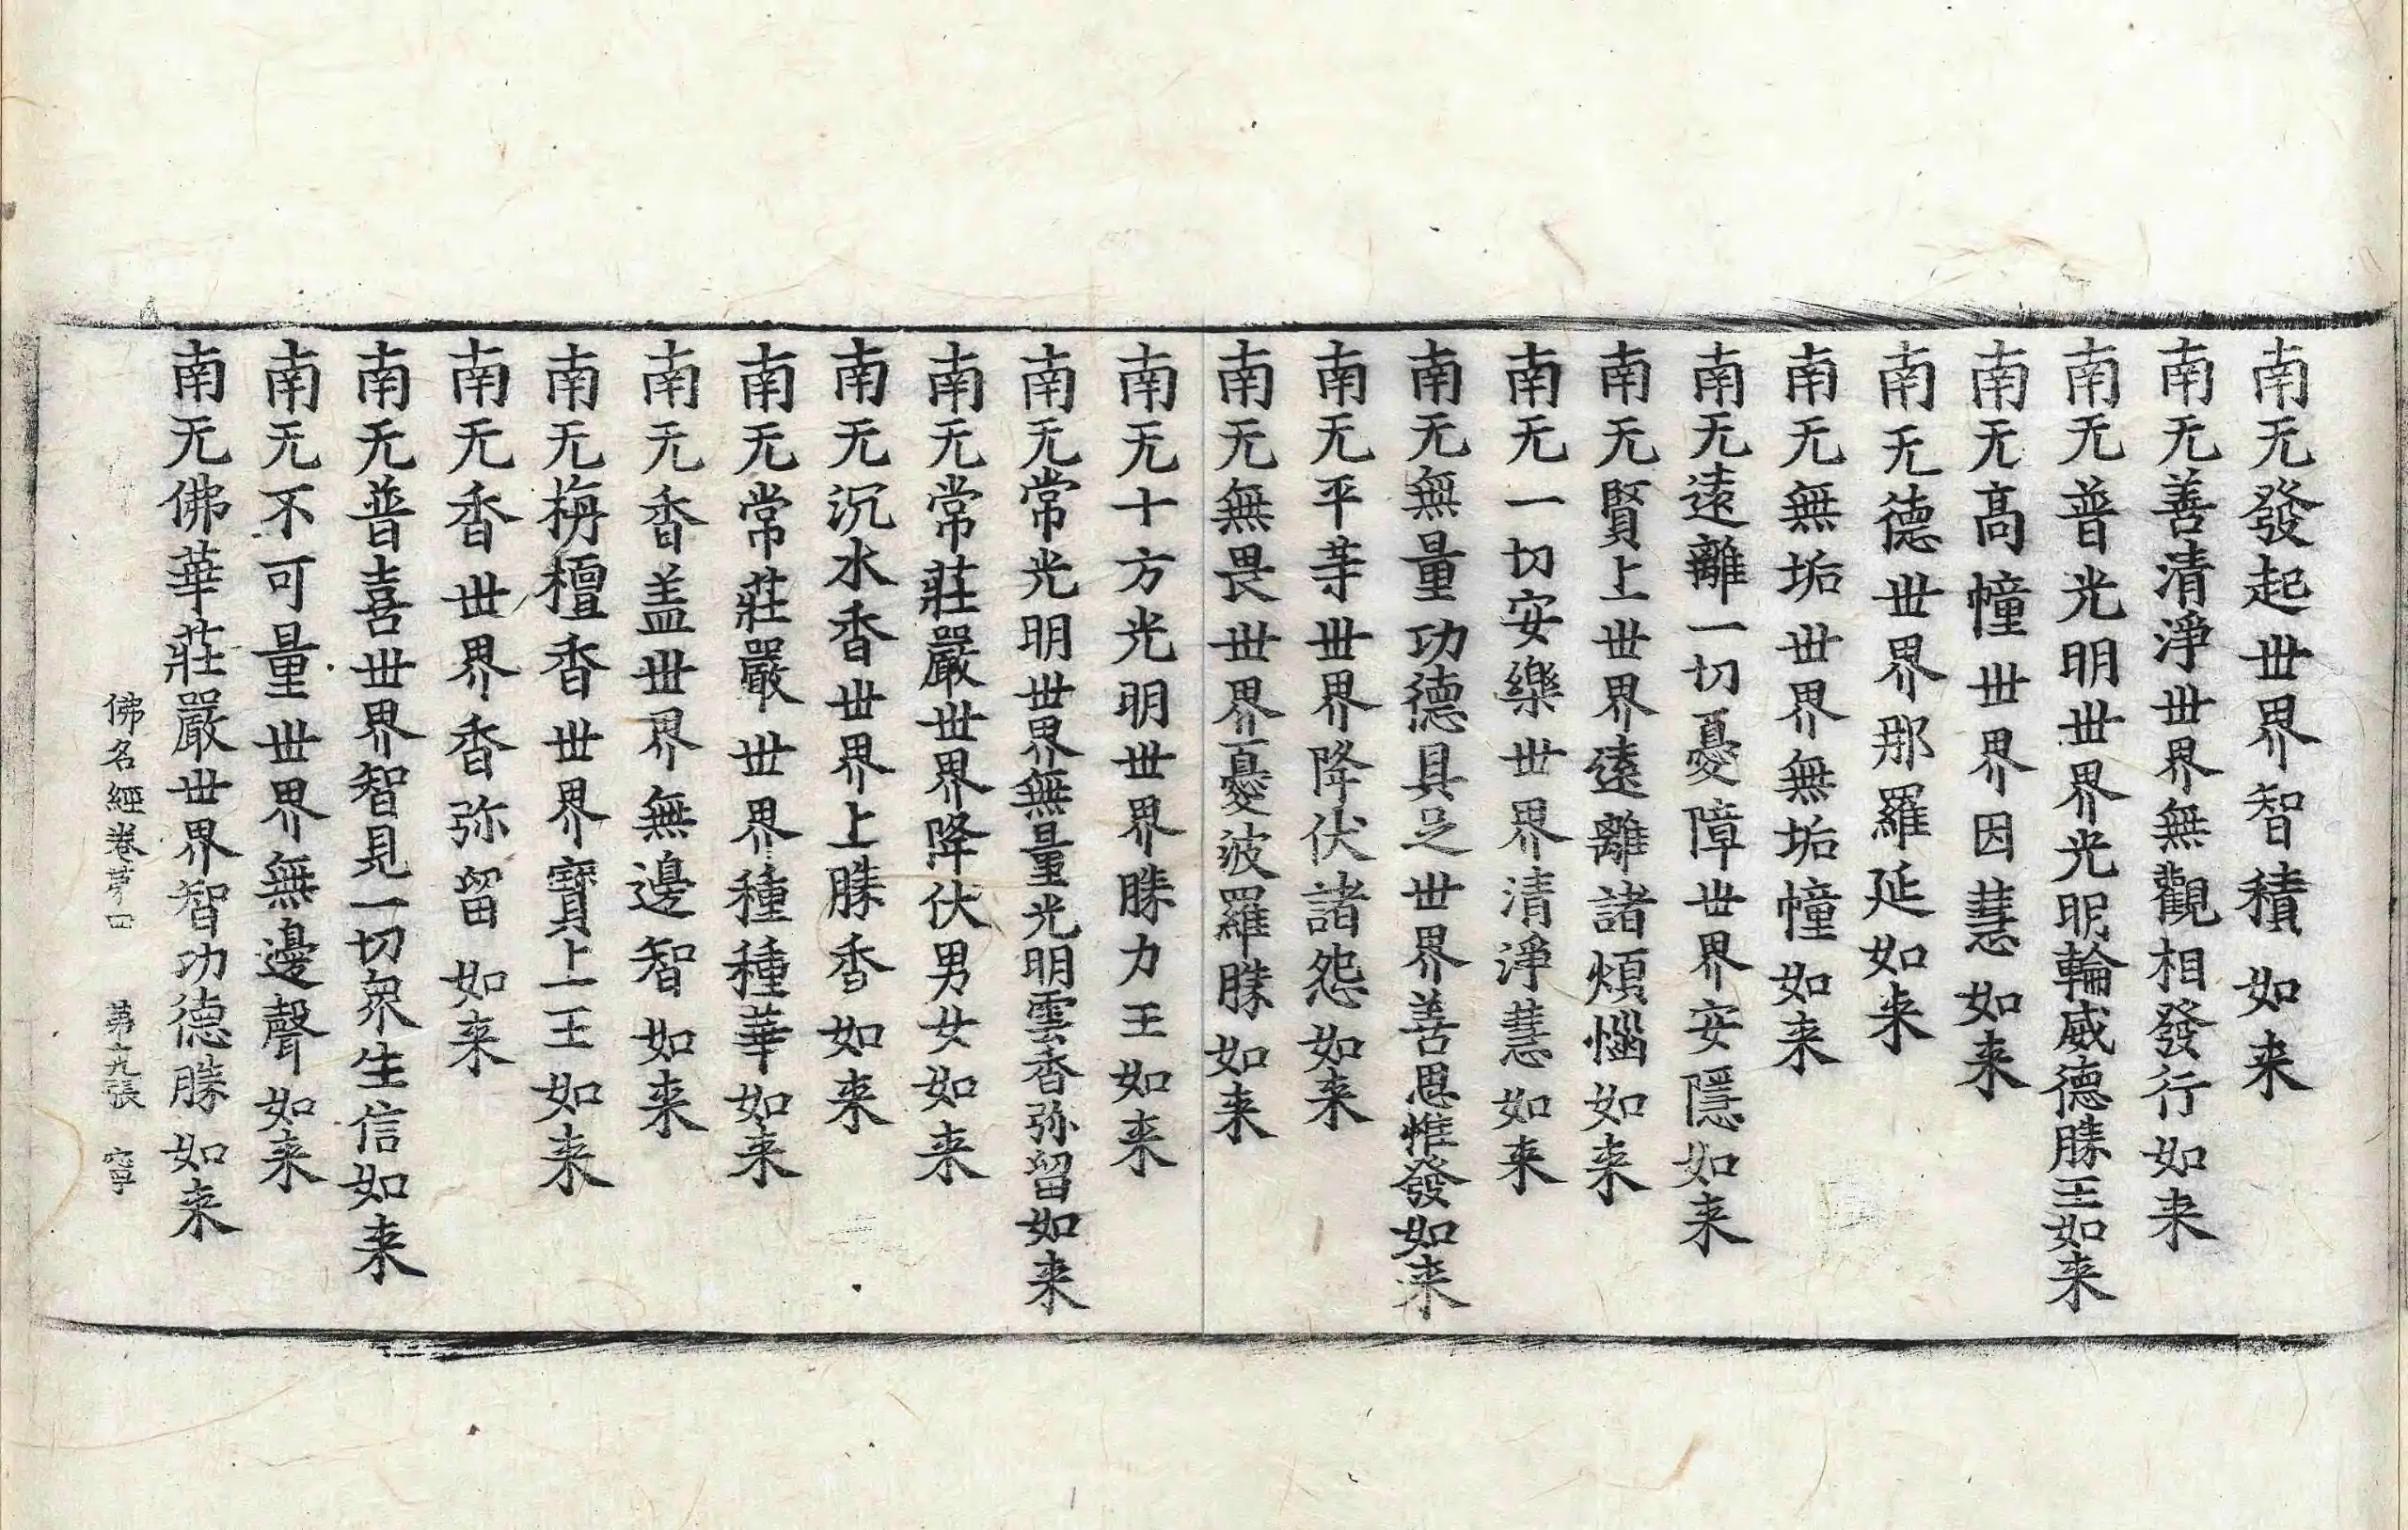 南无發起世界智積如来
南无善清淨世界無觀相發行如来
南无普光明世界光明輪威德勝王如来
南无髙幢世界因慧如来
南无德世界那羅延如来
南无無垢世界無垢幢如来
南无逺離一切憂障世界安隱如来
南无賢上世界逺離諸煩惱如来
南无一切安樂世界清淨慧如来
南无無量功德具足世界善思惟發如来
南无平等世界降伏諸怨如来
南无無畏世界憂波羅勝如来
南无十方光明世界勝力王如来
南无常光明世界無量光明雲香弥留如来
南无常莊嚴世界降伏男女如来
南无沉水香世界上勝香如来
南无常莊嚴世界種種華如来
南无香盖世界無邊智如来
南无栴檀香世界寶上王如来
南无香世界香弥留如来
南无普喜世界智見一切衆生信如来
南无不可量世界無邊聲如来
南无佛華莊嚴世界智功德勝如来
佛名經卷苐四 苐十九張 寧